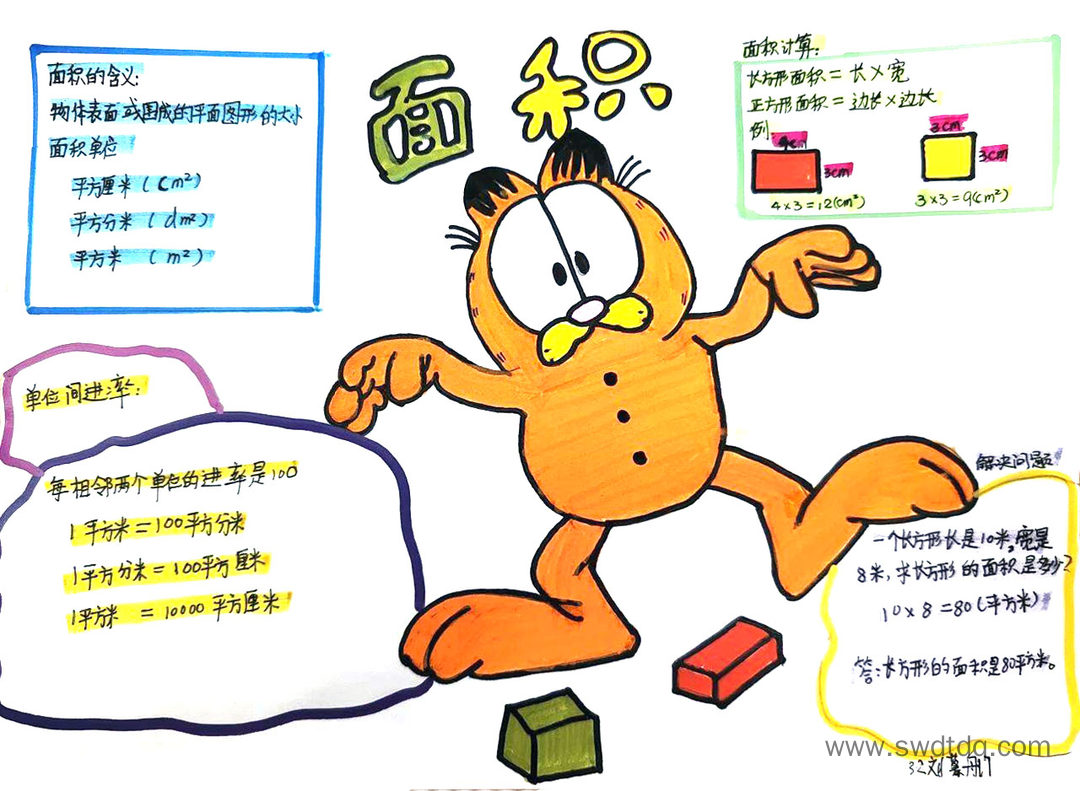 面积
面积的含义:
物体表面或围成的平面图形的大小
面积单位
平方厘米(cm²)
平方分米(dm²)
平方米(m²)
面积计算:
长方形面积=长×宽
正方形面积=边长×边长
例
4cm
3cm
4×3=12(cm²)
3cm
3cm
3×3=9(cm²)
单位间进率:
每相邻两个单位的进率是100
1平方米=100平方分米
1平方分米=100平方厘米
1平方米=10000平方厘米
解决问题
一个长方形长是10米,宽是
8米,求长方形的面积是多少?
10×8=80(平方米)
答:长方形的面积是80平方米。
www.swdtdq.com